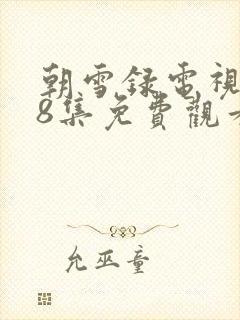 朝雪録電視
8集免費觀
允巫童